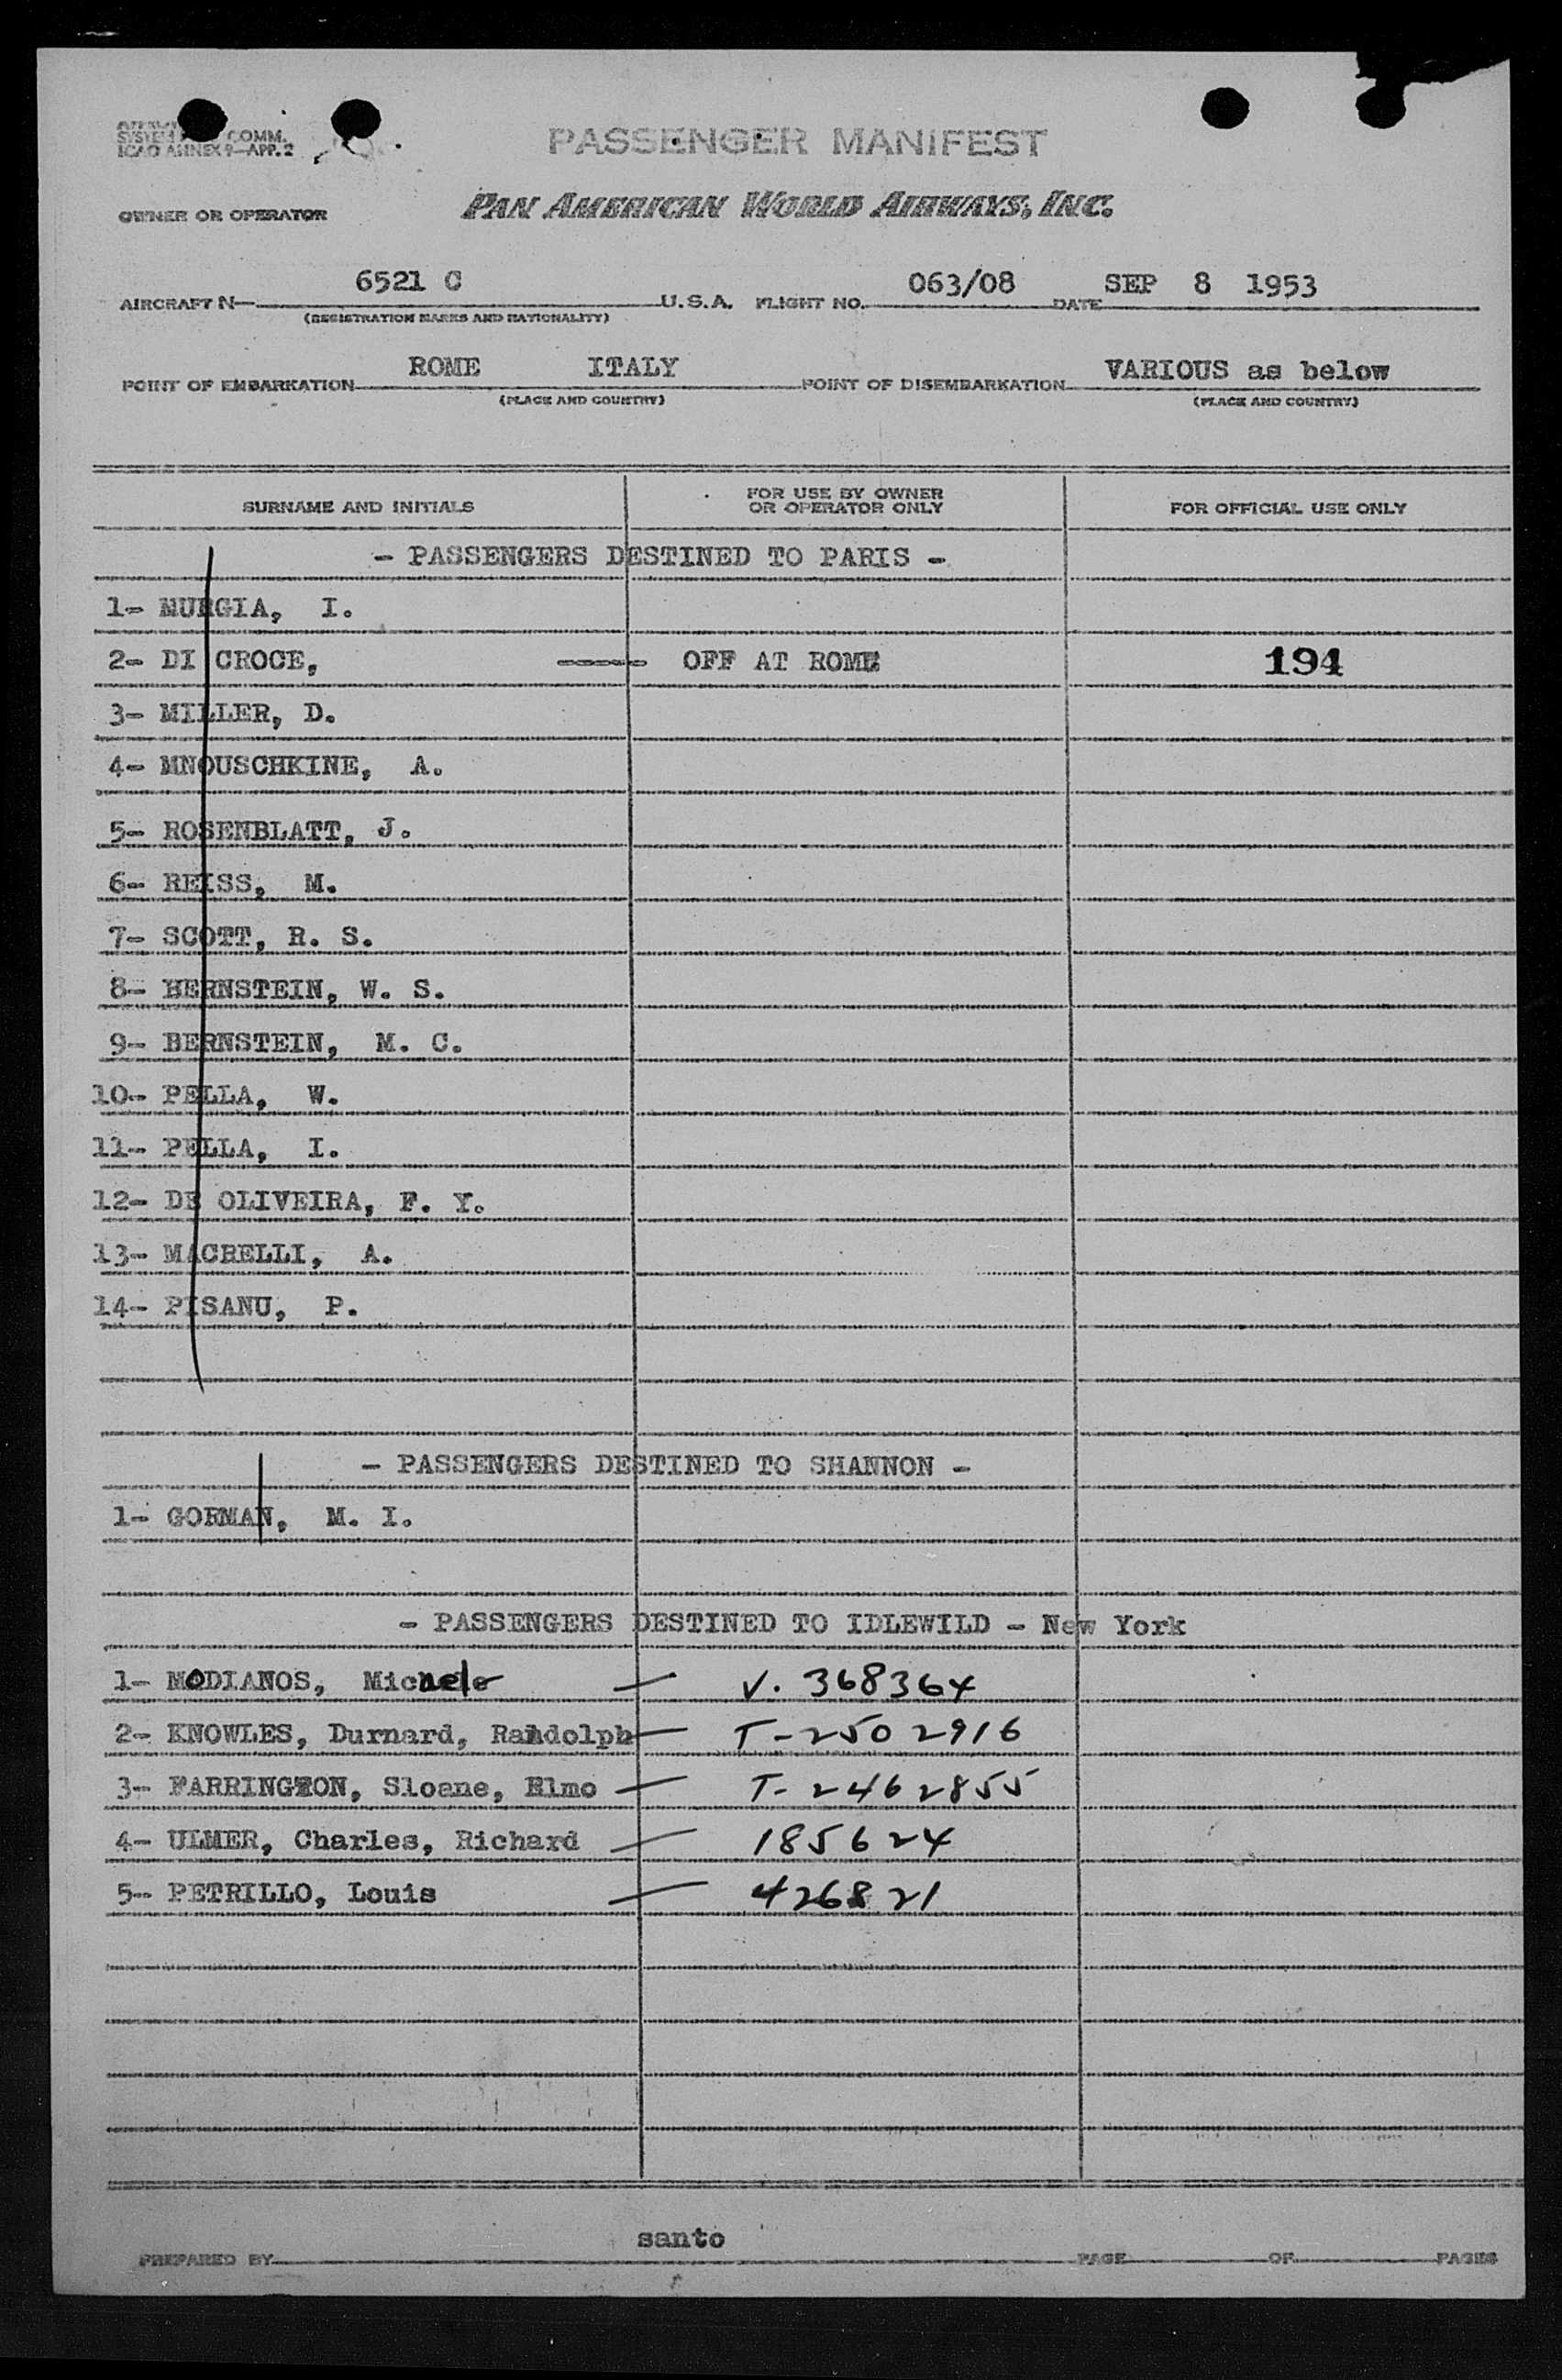 SYSTEM COMM.
ICAO ANNEX 9—APP. 2
PASSENGER MANIFEST
OWNER OR OPERATOR PAN AMERICAN WORLD AIRWAYS, INC.
AIRCRAFT N— 6521 C U.S.A. FLIGHT NO. 063/08 DATE SEP 8 1953
(REGISTRATION MARKS AND NATIONALITY)
POINT OF EMBARKATION ROME ITALY POINT OF DISEMBARKATION VARIOUS as below
(PLACE AND COUNTRY) (PLACE AND COUNTRY)
SURNAME AND INITIALS FOR USE BY OWNER OR OPERATOR ONLY FOR OFFICIAL USE ONLY
- PASSENGERS DESTINED TO PARIS -
1- MURGIA, I.
2- DI CROCE, ----- OFF AT ROME 194
3- MILLER, D.
4- MNOUSCHKINE, A.
5- ROSENBLATT, J.
6- REISS, M.
7- SCOTT, R. S.
8- BERNSTEIN, W. S.
9- BERNSTEIN, M. C.
10- PELLA, W.
11- PELLA, I.
12- DE OLIVEIRA, F. Y.
13- MACRELLI, A.
14- PISANU, P.
- PASSENGERS DESTINED TO SHANNON -
1- GORMAN, M. I.
- PASSENGERS DESTINED TO IDLEWILD - New York
1- MODIANOS, — V. 368364
2- KNOWLES, Durnard, Randolph — T-2502916
3- FARRINGTON, Sloane, Elmo — T-2462855
4- ULMER, Charles, Richard — 185624
5- PETRILLO, Louis — 426821
santo
PREPARED BY PAGE OF PAGES